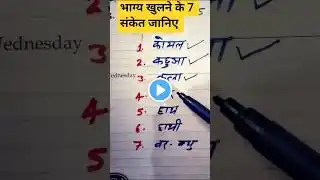 भाग्य खुलने के 7
संकेत जानिए
Wednesday
1. कोमल
2. कछुआ
3.
4.
5. हाथ
6. हाथी
7. वर-वधु